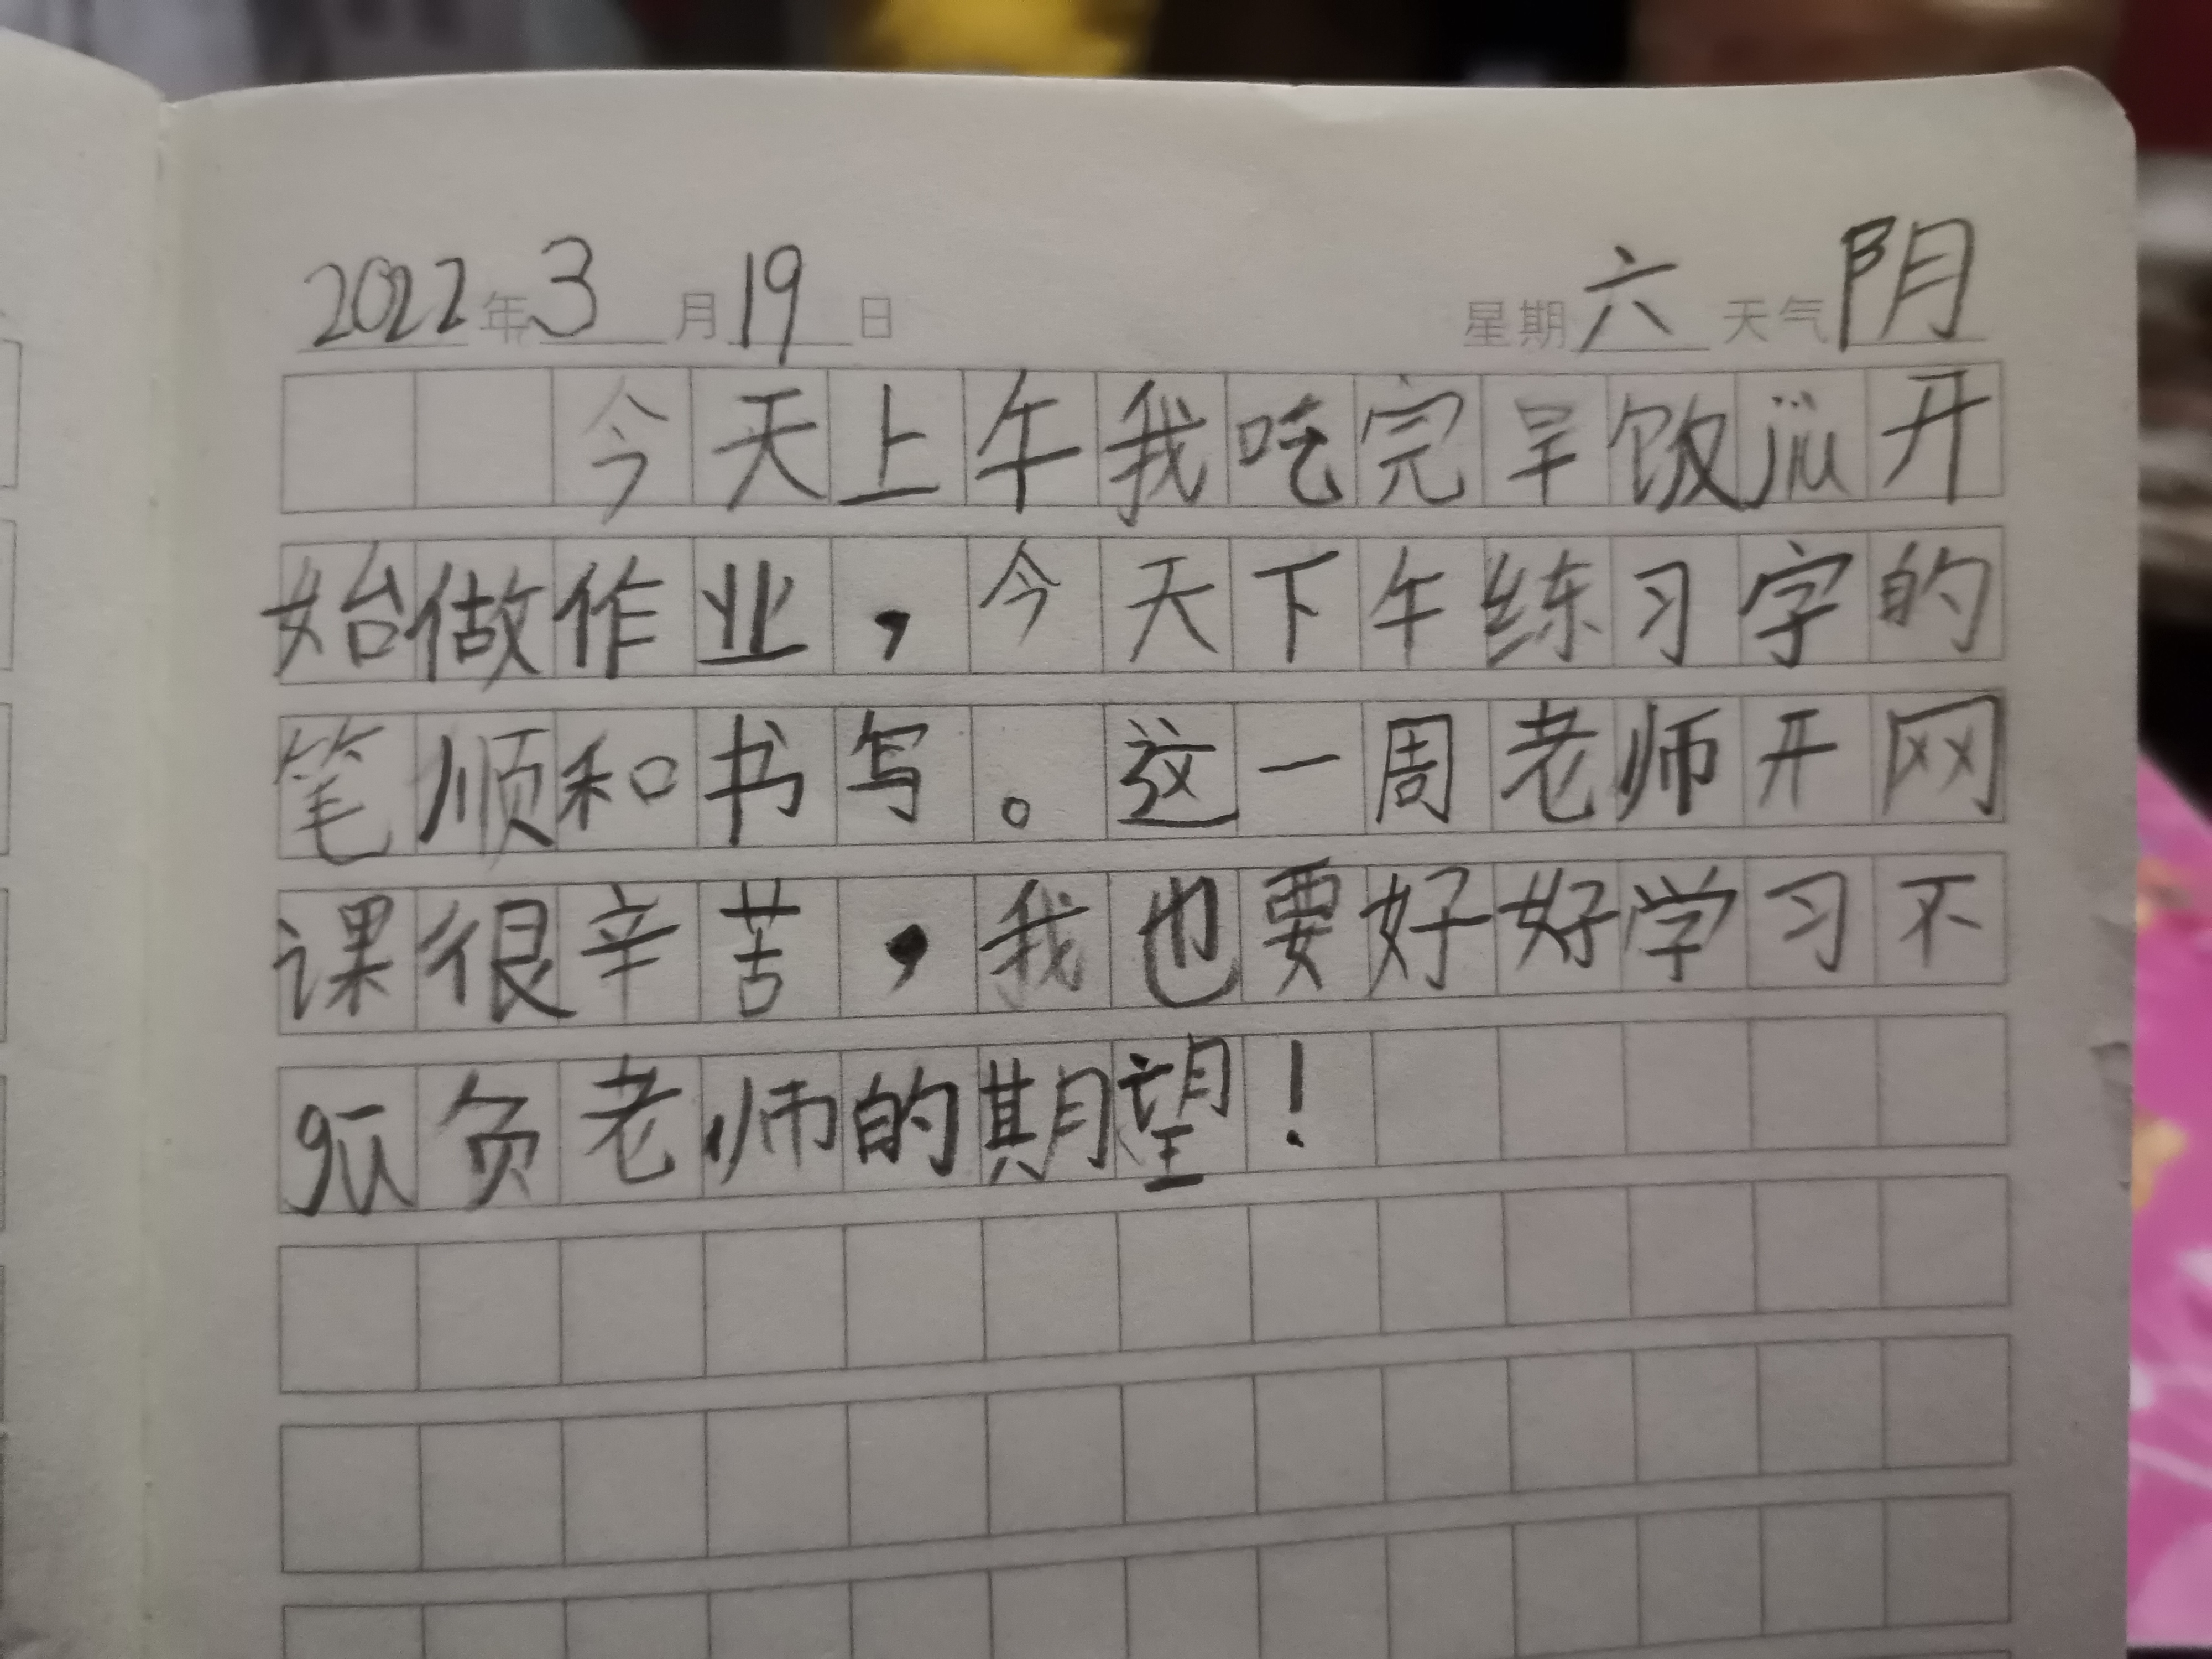 2022年3月19日 星期六 天气阴
今天上午我吃完早饭jiu开
始做作业，今天下午练习字的
笔顺和书写。这一周老师开网
课很辛苦，我也要好好学习不
gu负老师的期望！